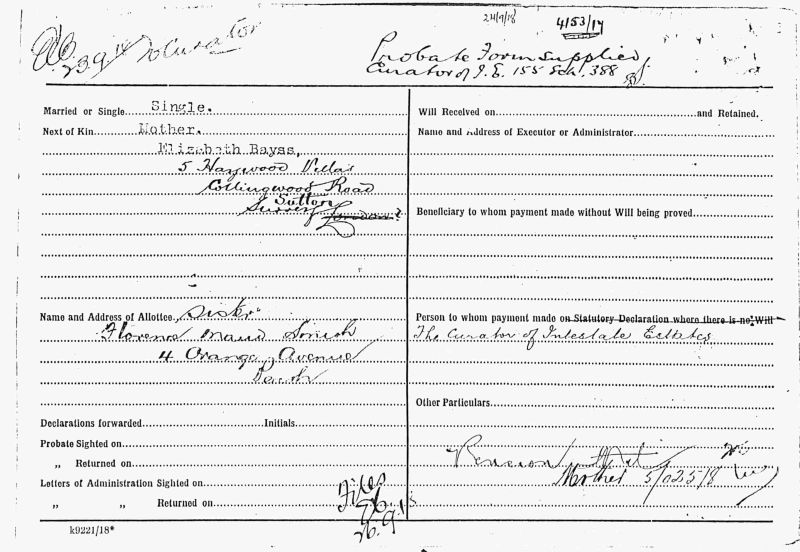 24/9/18
4153/17
23.9.18 to Curator
Probate Form supplied,
Curator of I.E. 155 Sch. 388
Married or Single Single.
Next of Kin Mother.
Elizabeth Bayss,
5 Haywood Villas
Collingwood Road
Sutton
Surrey London?
Name and Address of Allottee Sister
Florence Maud Smith
4 Orange Avenue
Perth
Declarations forwarded Initials
Probate Sighted on
„ Returned on
Letters of Administration Sighted on
„ „ Returned on
Files
26.9.18
k9221/18*
Will Received on and Retained.
Name and Address of Executor or Administrator
Beneficiary to whom payment made without Will being proved
Person to whom payment made on Statutory Declaration where there is no Will
The Curator of Intestate Estates
Other Particulars
Pension
Mother